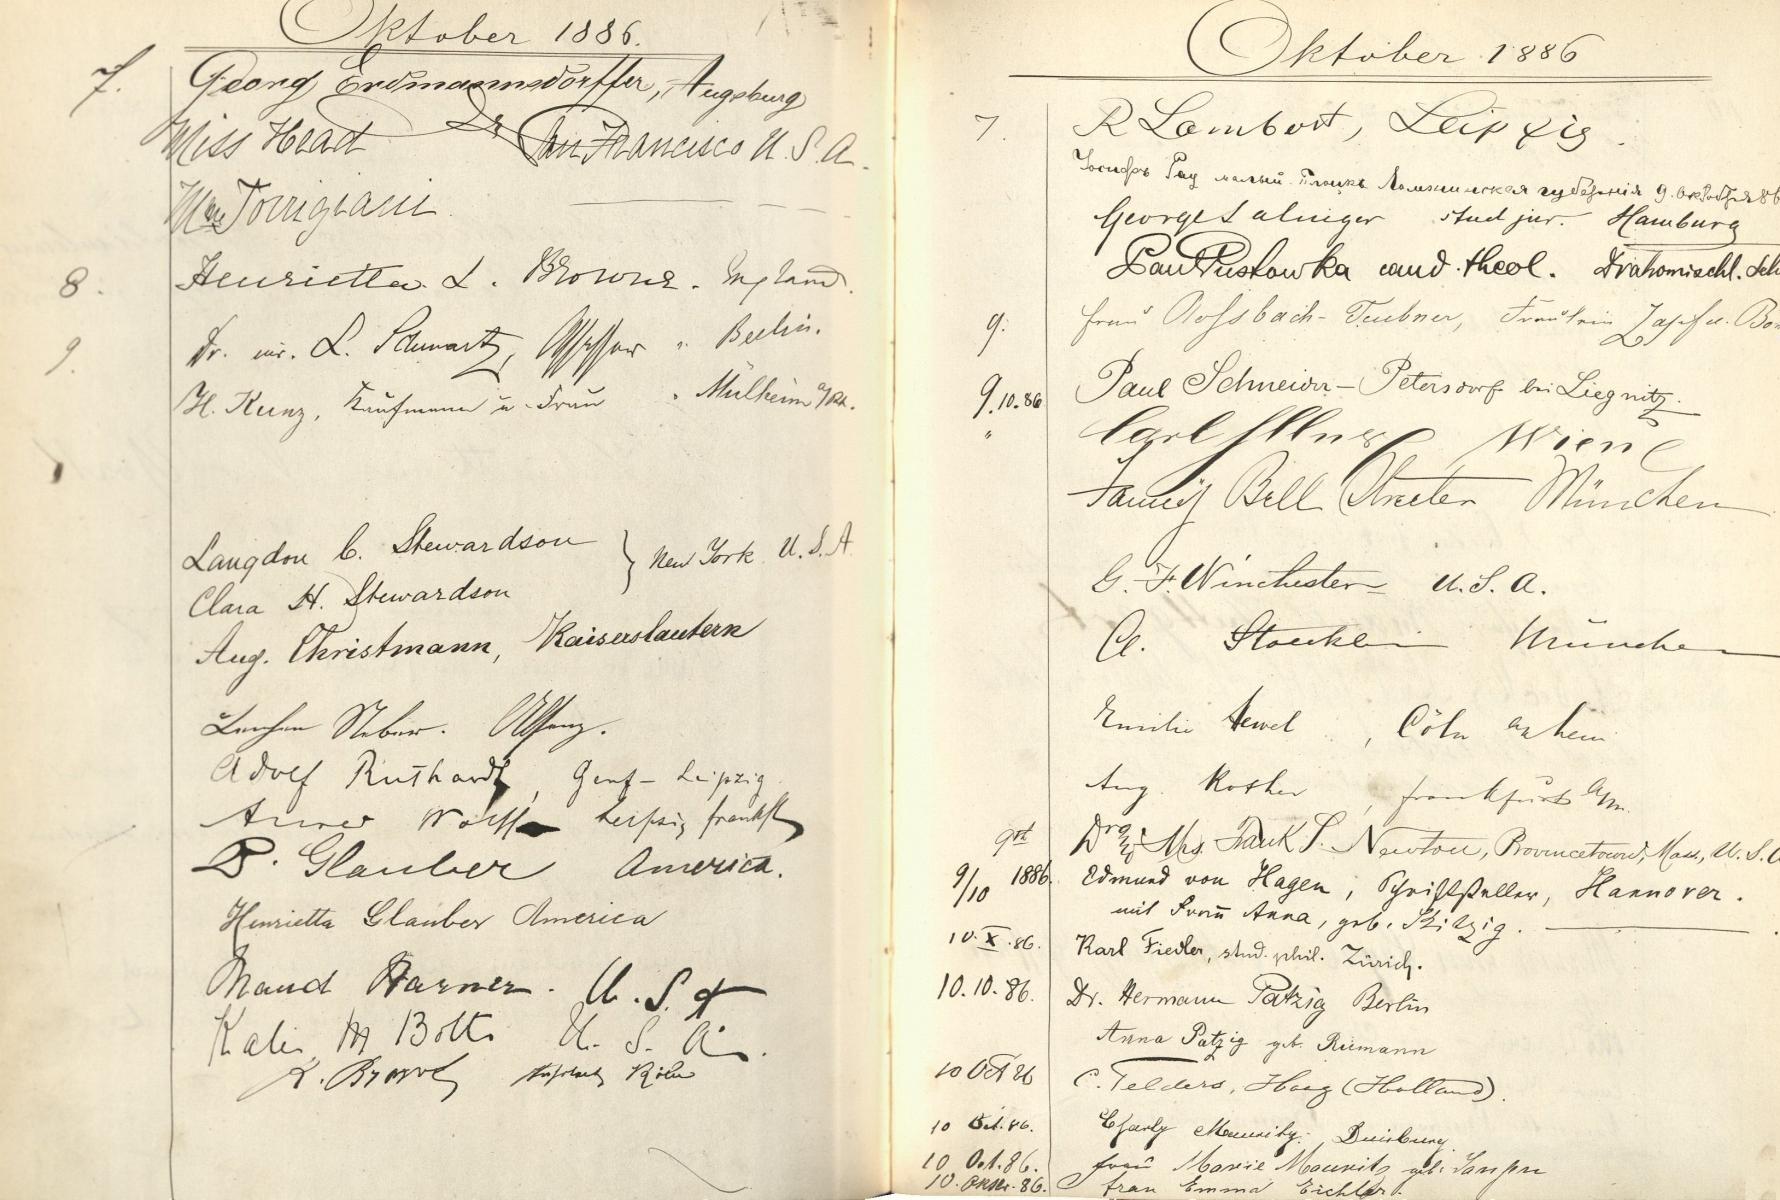 Oktober 1886.
7. Georg Erdmannsdörffer, Augsburg
Miss Head San Francisco U. S. A.
Torrigiani
8. Henrietta L. Browne. England.
9. Dr. iur. L. Schwartz, Assessor " Berlin.
H. Kunz, Kaufmann u. Frau " Mülheim a/Rh.
Langdon C. Stewardson } New York U. S. A
Clara H. Stewardson
Aug. Christmann, Kaiserslautern
Adolf Ruthardt, Genf – Leipzig
Wolff Leipzig
P. Glauber America.
Henrietta Glauber America
Maud Warner. U. S. A
Katie M Botts U. S. A.
Köln
Oktober 1886
7. R Lambert, Leipzig
9. Октября 86
George stud jur. Hamburg
Paul Pustowka cand. theol. Drahomischl.
9. Frau Rossbach-Teubner, Fräulein
9.10.86 Paul Schneider – Petersdorf bei Liegnitz.
" Carl Wien
Fanny Bell Streeter München
G. F. Winchester U. S. A.
Cl. Stoecklein München
Emilie Hewel, Cöln a Rhein
Aug. Kosher, Frankfurt a/m.
9th Dr & Mrs. Frank S. Newton, Provincetown, Mass, U. S. A
9/10 1886. Edmund von Hagen, Schriftsteller, Hannover.
mit Frau Anna, geb.
10. X. 86. Karl Fiedler, stud. phil. Zürich.
10.10.86. Dr. Hermann Patzig Berlin
Anna Patzig gb. Riemann
10 Oct 86 C. Telders, Haag (Holland).
10 Oct. 86. Charly Mauritz, Duisburg
10 Oct. 86. Frau Marie Mauritz geb.
10. Oktbr. 86. Frau Emma Eichler.